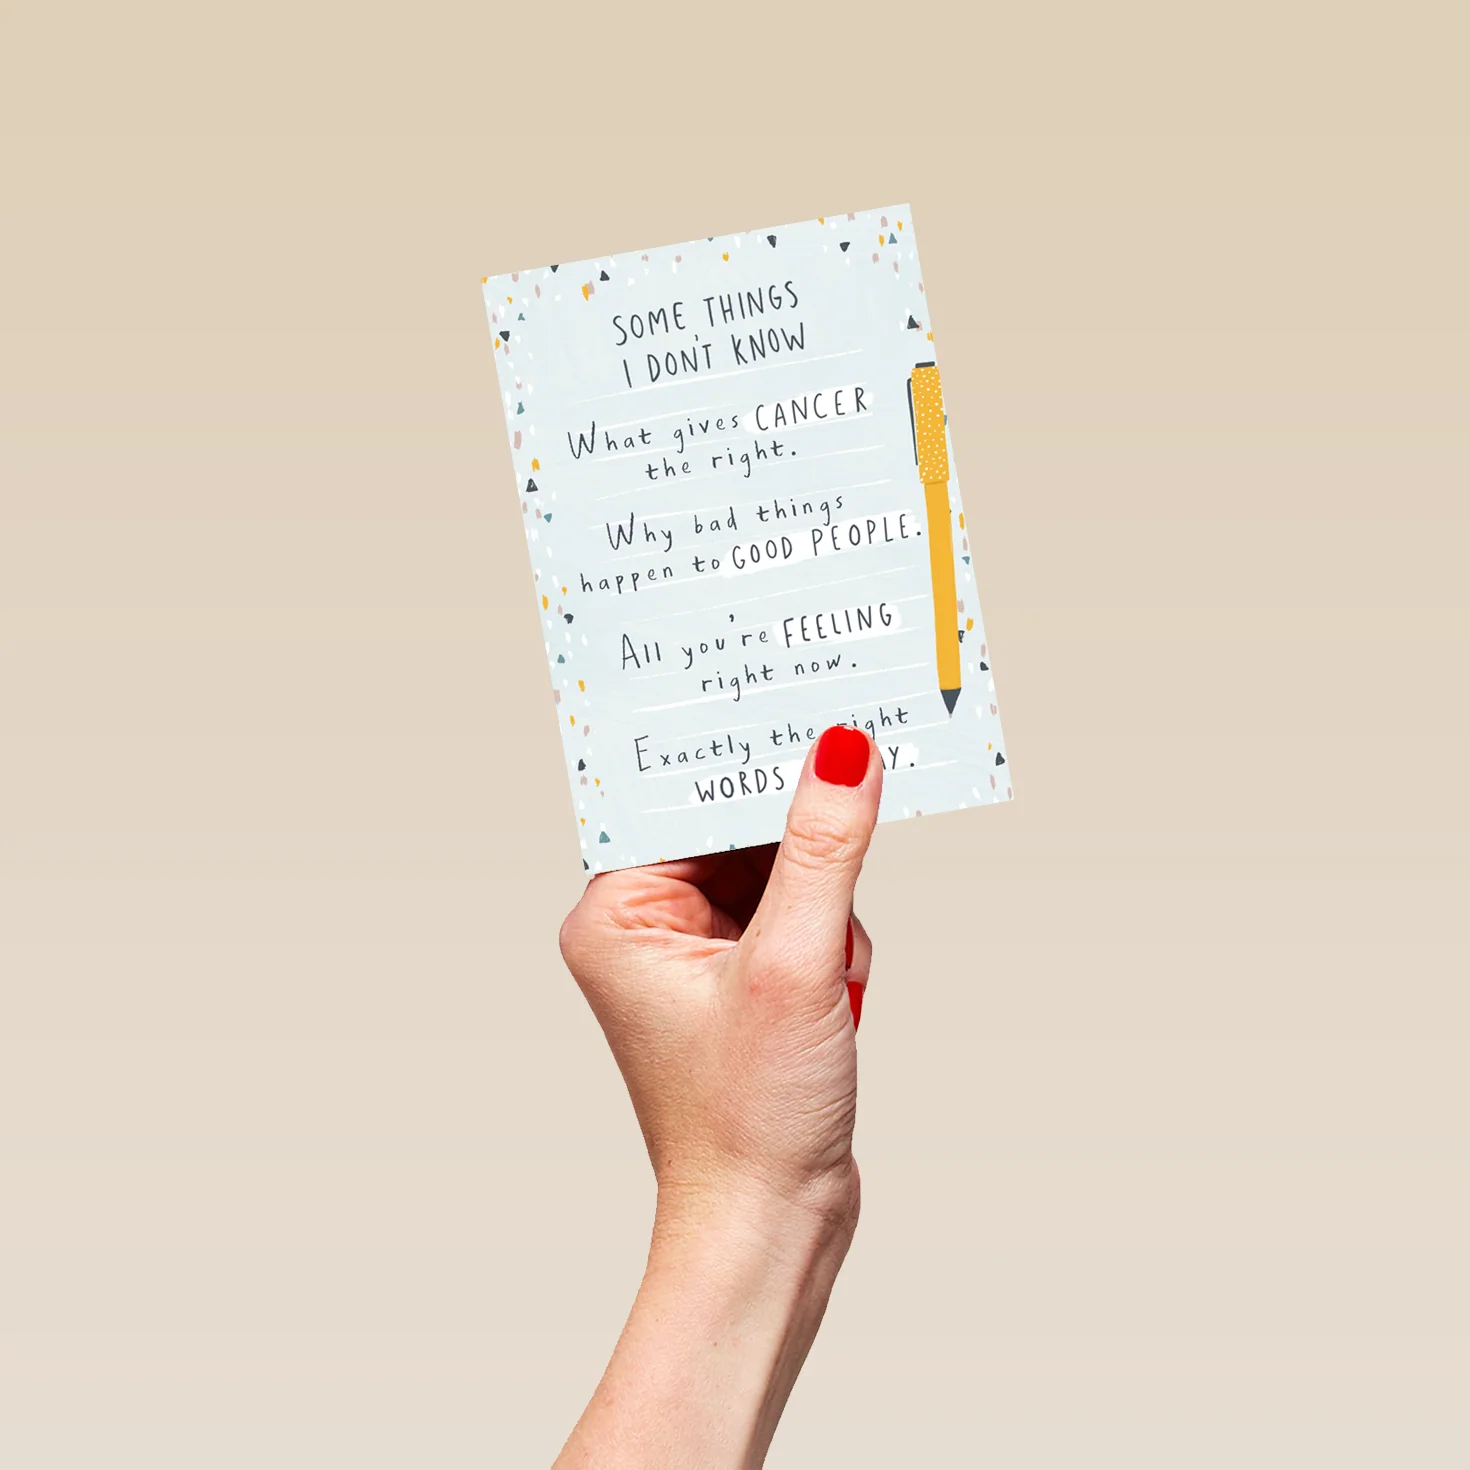 SOME THINGS
I DON'T KNOW
What gives CANCER
the right.
Why bad things
happen to GOOD PEOPLE.
All you're FEELING
right now.
Exactly the right
WORDS